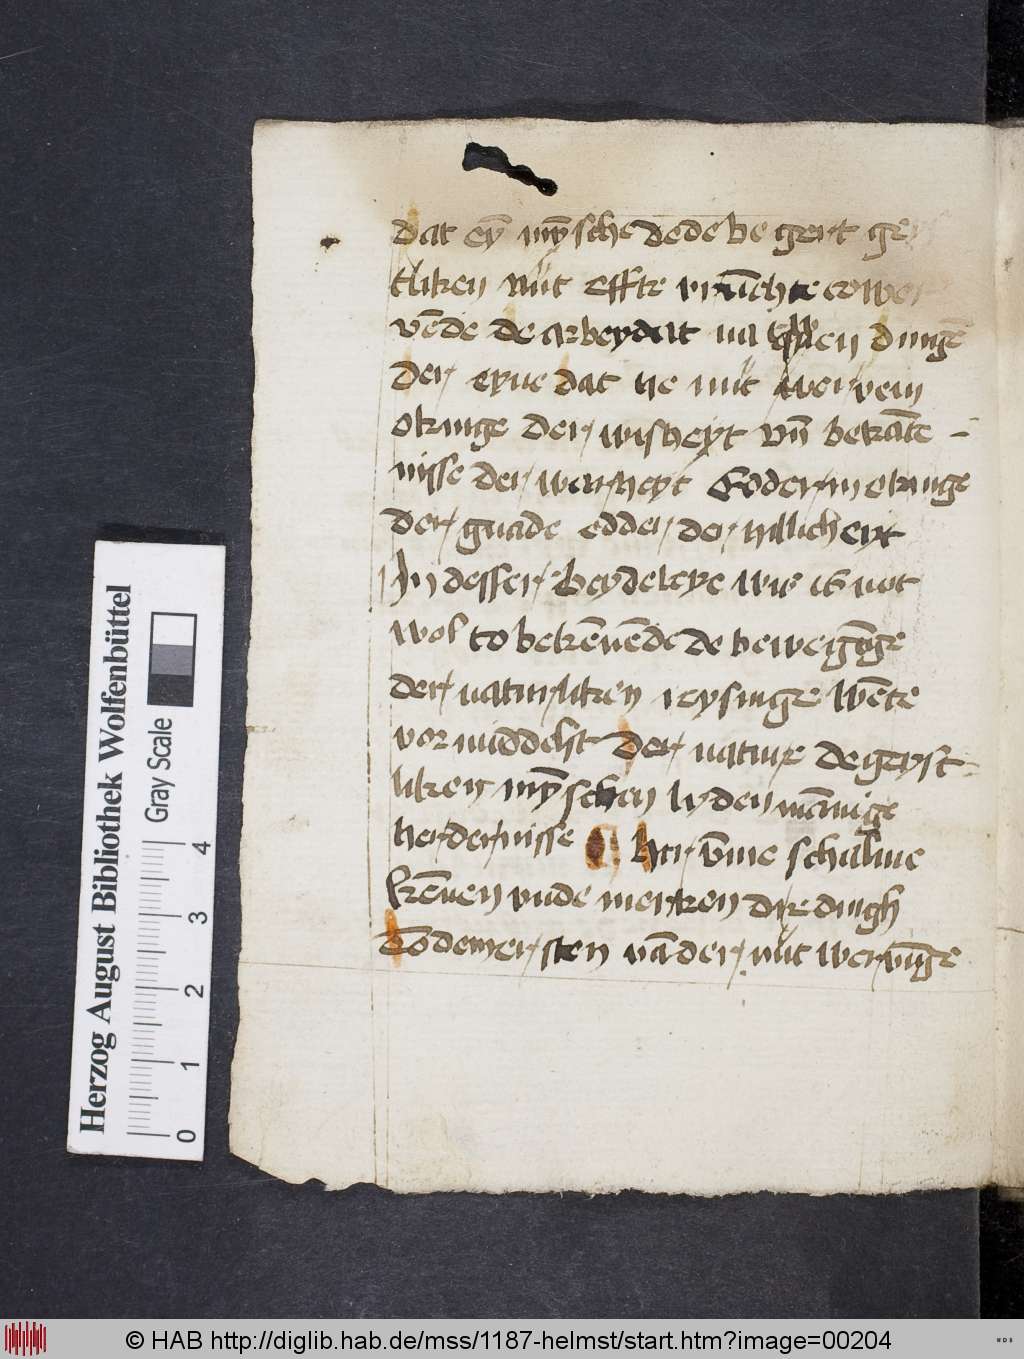 dat ey̅ my̅sche dede be gert ge
tliken nut effte vruchte
vēde de arbeydat na dinge
der eyne dat he nut wer vem
okringe der wisheyt vn̅ bekāte
nisse der warheyt Edder in okringe
der gnade edder der hillicheyt
In desser beydeleye wis is not
wol to bekēnēde de beweginge
der naturliken reysinge wēte
vor middelst der natur de geyst
liken my̅schen lyden mānige
herdernisse ¶ her v̅me schalme
kēnen vnde merken dre dingh
To dem ersten vā der nut wervīge
Herzog August Bibliothek Wolfenbüttel
Gray Scale
0 1 2 3 4
© HAB http://diglib.hab.de/mss/1187-helmst/start.htm?image=00204